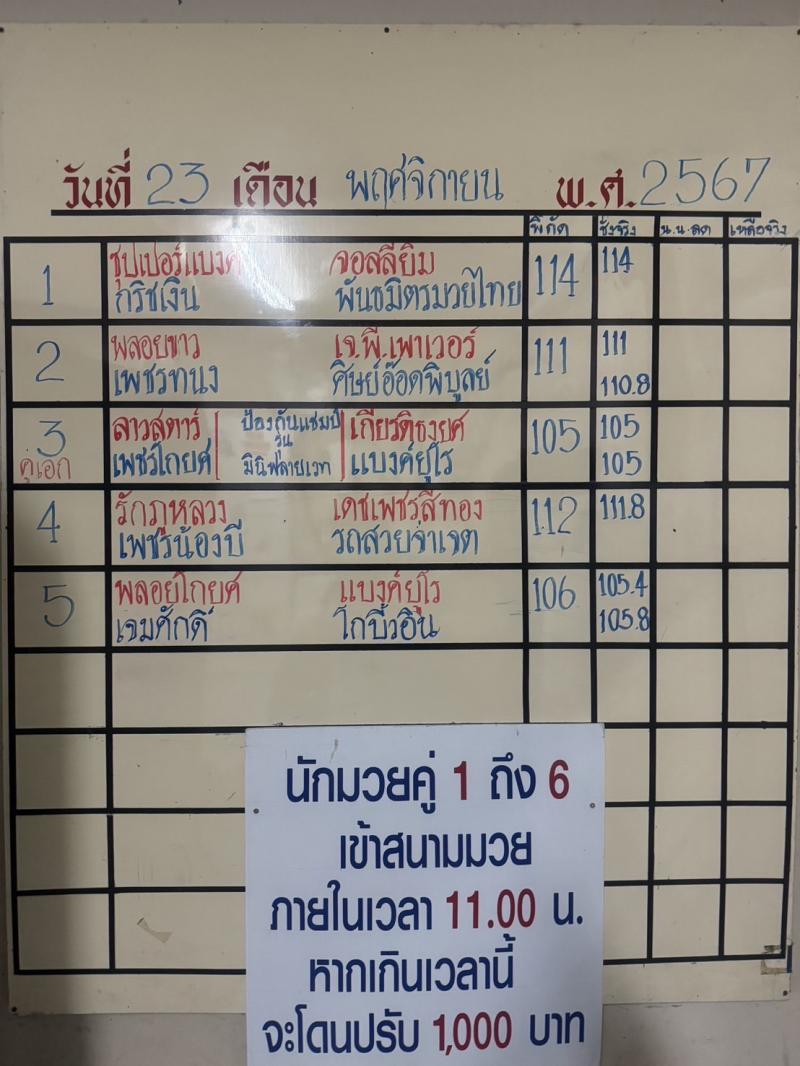 วันที่ 23 เดือน พฤศจิกายน พ.ศ. 2567
พิกัด ชั่งจริง น.น.ลด เหลือจริง
1 ซุปเปอร์แบงค์ จอลลี่ยิม 114 114
กริชเงิน พันธมิตรมวยไทย
2 พลอยขาว เจ.พี.เพาเวอร์ 111 111
เพชรทนง ศิษย์อ๊อดพิบูลย์ 110.8
3 ลาวสตาร์ ป้องกันแชมป์ เกียรติธงยศ 105 105
รุ่น
คู่เอก เพชรโกยศ มินิฟลายเวท แบงค์ยูโร 105
4 รักภูหลวง เดชเพชรสีทอง 112 111.8
เพชรน้องบี รถสวยจ่าเจต
5 พลอยโกยศ แบงค์ยูโร 106 105.4
เจมศักดิ์ โกบี้วอิน 105.8
นักมวยคู่ 1 ถึง 6
เข้าสนามมวย
ภายในเวลา 11.00 น.
หากเกินเวลานี้
จะโดนปรับ 1,000 บาท